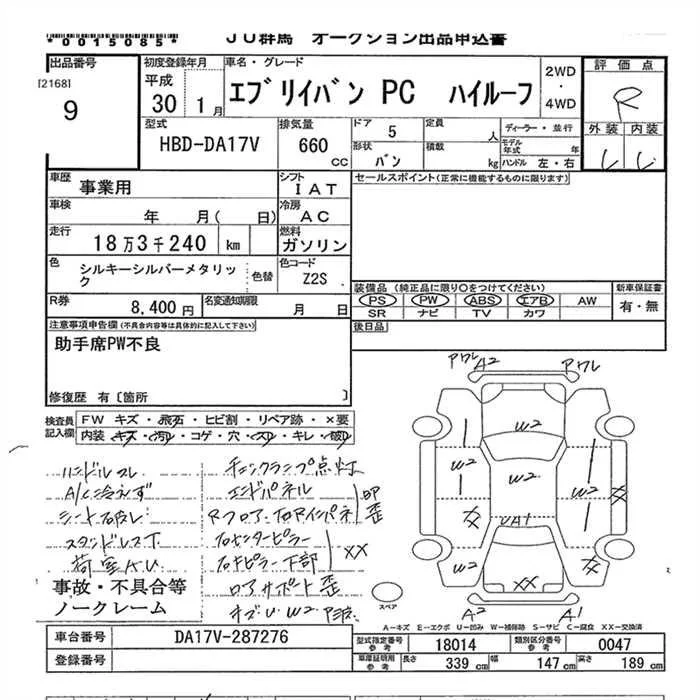 *0015085*
JU群馬 オークション出品申込書
出品番号
[2168]
9
初度登録年月
平成
30 1月
車名・グレード
エブリイバン PC ハイルーフ
2WD
・
4WD
評価点
R
外装 内装
型式
HBD-DA17V
排気量
660
CC
ドア
5
形状
バン
定員
人
積載
kg
ディーラー・並行
モデル年式 年
ハンドル 左・右
車歴
事業用
シフト
IAT
セールスポイント(正常に機能するものに限ります)
車検
年 月( 日)
冷房
AC
走行
18万3千240 km
燃料
ガソリン
色
シルキーシルバーメタリック
色替
色コード
Z2S
装備品 (純正品に限り○をつけてください)
PS PW ABS エアB AW
SR ナビ TV カワ
新車保証書
有・無
R券
8,400円
名変通知期限
月 日
後日品
注意事項申告欄(不具合内容等は具体的に記入して下さい)
助手席PW不良
修復歴 有〔箇所 〕
検査員
記入欄
FW キズ・飛石・ヒビ割・リペア跡・×要
内装 キズ・汚れ・コゲ・穴・スリ・キレ・破れ
ハンドルスレ
A/C冷えず
シート破レ
スタンドレス下
荷室A.U
チェックランプ点灯
エンドパネル
Rフロア、右Rインパネ
凹
歪
右センターピラー
右Fピラー下部
XX
ロアサポート歪
キズU W2
事故・不具合等
ノークレーム
アワレ A2 アワレ
W2
W2 W2 W2
XX
UA1
W2 XX XX
A2 A1
スペア
A－キズ E－エクボ U－凹み W－補修跡 S－サビ C－腐食 XX－交換済
車台番号
DA17V-287276
登録番号
型式指定番号
参考
18014
類別区分番号
参考
0047
車庫証明用
参考
長さ 339 cm
幅 147 cm
高さ 189 cm